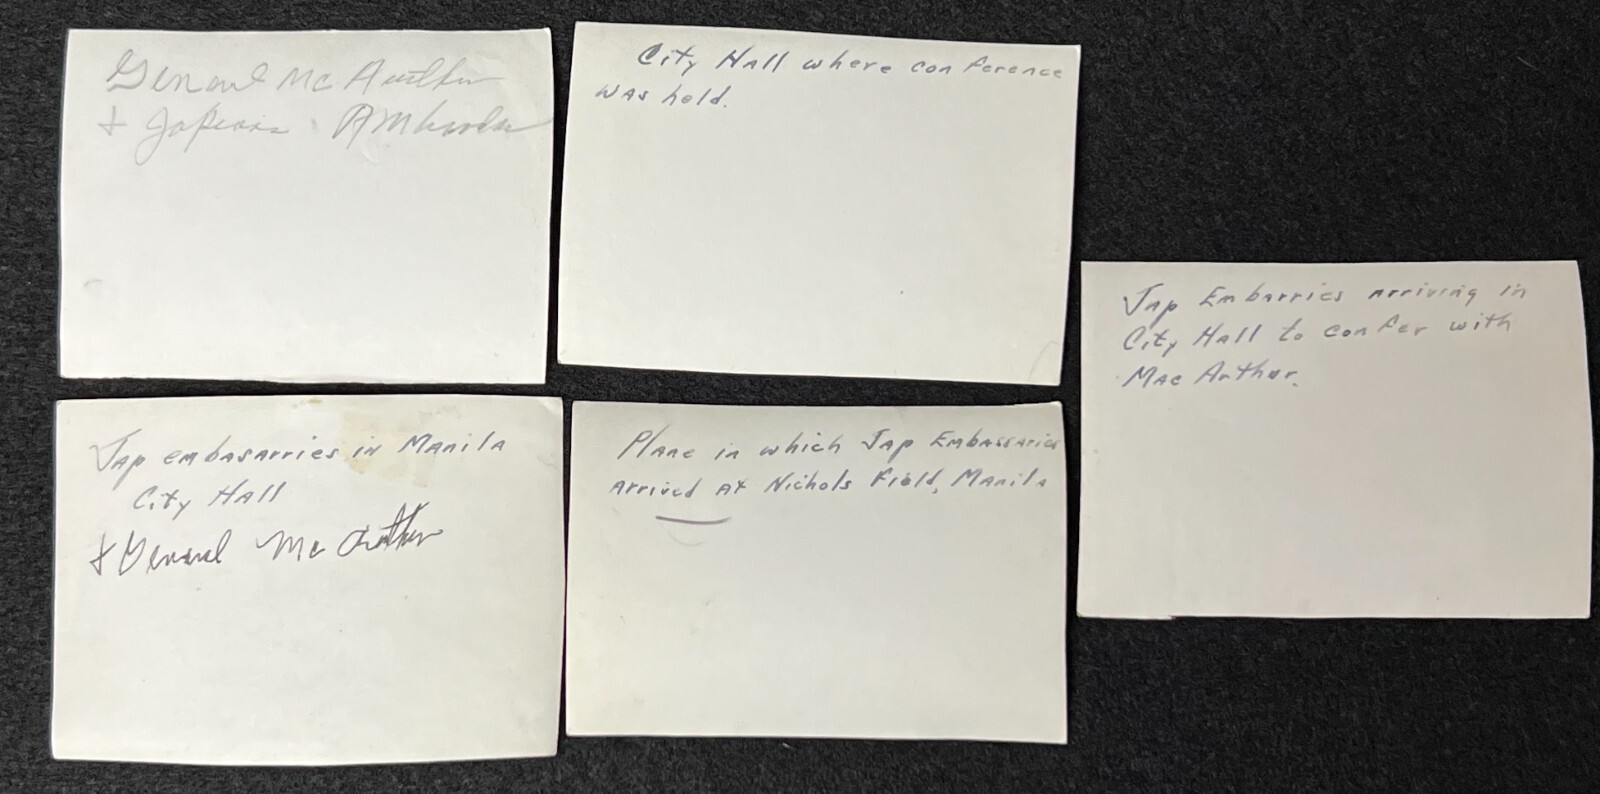 General Mc Arthur
+ Japanese Ambassador
City Hall where conference
was held.
Jap Embarries arriving in
City Hall to confer with
Mac Arthur.
Jap embasarries in Manila
City Hall
+ General Mc Arthur
Plane in which Jap Embassaries
arrived at Nichols Field, Manila